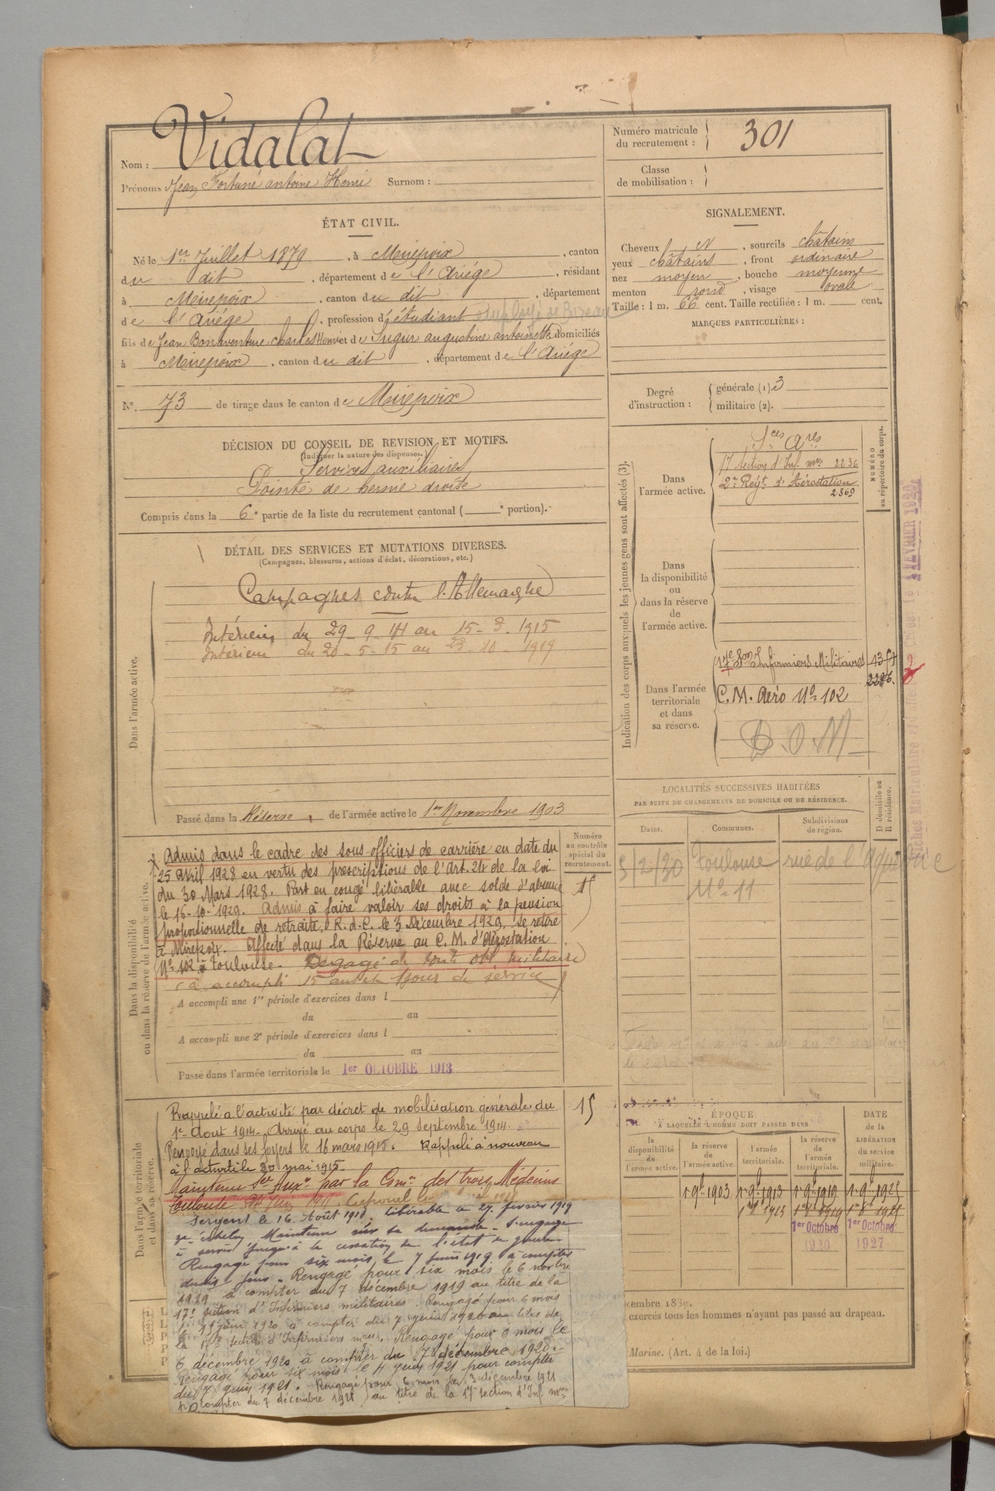 Nom : Vidalat
Prénoms Jean Fortuné antoine Henri Surnom :
Numéro matricule du recrutement : 301
Classe de mobilisation :
ÉTAT CIVIL.
Né le 1er Juillet 1879, à Mirepoix, canton
du dit, département de l'Ariége, résidant
à Mirepoix, canton du dit, département
de l'Ariége, profession d'étudiant employé de Bureau
fils de Jean Bonaventure charles Henri et de augustine antoinette domiciliés
à Mirepoix, canton du dit, département de l'Ariége
N° 73 de tirage dans le canton de Mirepoix
SIGNALEMENT.
Cheveux et, sourcils châtains
yeux châtains, front ordinaire
nez moyen, bouche moyenne
menton rond, visage ovale
Taille : 1 m. 66 cent. Taille rectifiée : 1 m. cent.
MARQUES PARTICULIÈRES :
Degré d'instruction : générale (1) 3
militaire (2).
DÉCISION DU CONSEIL DE REVISION ET MOTIFS.
(Indiquer la nature des dispenses.)
Services auxiliaires
Pointe de hernie droite
Compris dans la 6e partie de la liste du recrutement cantonal ( e portion).
DÉTAIL DES SERVICES ET MUTATIONS DIVERSES.
(Campagnes, blessures, actions d'éclat, décorations, etc.)
Dans l'armée active.
Campagnes contre l'Allemagne
Intérieur du 29-9-14 au 15-3-1915
Intérieur du 20-5-15 au 23-10-1919
Passé dans la Réserve de l'armée active le 1er Novembre 1903
Indication des corps auxquels les jeunes gens sont affectés (3).
NUMÉRO au répertoire du corps.
Dans l'armée active.
Sces Ares
17 Section d'Inf. mres 2236
2e Regt d'Aérostation
2869
Dans la disponibilité ou dans la réserve de l'armée active.
Dans l'armée territoriale et dans sa réserve.
17e Son Infirmiers Militaires
C.M. Aéro N° 102
D.O.M
LOCALITÉS SUCCESSIVES HABITÉES
PAR SUITE DE CHANGEMENTS DE DOMICILE OU DE RÉSIDENCE.
Dates. Communes. Subdivisions de région. D domicile ou R résidence.
5/2/30 Toulouse rue de l'
N° 11
Dans la disponibilité ou dans la réserve de l'armée active.
Numéro au contrôle spécial du recrutement.
Admis dans le cadre des sous-officiers de carrière en date du
25 avril 1928 en vertu des prescriptions de l'Art. 24 de la loi
du 30 Mars 1928. Part en congé libérable avec solde d'absence
le 16-10-1929. Admis à faire valoir ses droits à la pension
proportionnelle de retraite, R.d.C. le 3 Décembre 1929, se retire
à Mirepoix. Affecté dans la Réserve au C.M. d'Aérostation
N° 102 à Toulouse. Dégagé de toute obl. militaire
(a accompli 15 ans et jours de service
A accompli une 1re période d'exercices dans l
du au
A accompli une 2e période d'exercices dans l
du au
Passé dans l'armée territoriale le 1er OCTOBRE 1913
Dans l'armée territoriale et dans sa réserve.
Rappelé a l'activité par décret de mobilisation générale du
1er Aout 1914. Arrivé au corps le 29 Septembre 1914.
Renvoyé dans ses foyers le 16 mars 1915. Rappelé à nouveau
à l'activité le 20 mai 1915
Maintenu Sce Auxre par la Comon des trois Médecins
Toulouse
15
Sergent le 16 Août 1918. libérable le 27 février 1919
2e échelon Maintenu sur sa demande. S'engage
à servir jusqu'à la cessation de l'état de guerre
Rengagé pour six mois le 7 juin 1919 à compter
du 7 juin. Rengagé pour six mois le 6 novbre
1919 à compter du 7 décembre 1919 au titre de la
17e section d'Infirmiers militaires. Rengagé pour 6 mois
le juin 1920 à compter du 7 juin 1920 au titre de
la 17e section d'Infirmiers mres. Rengagé pour 6 mois le
6 décembre 1920 à compter du 7 décembre 1920.
Rengagé pour six mois le 4 juin 1921 pour compter
du 7 juin 1921. Rengagé pour 6 mois le 3 décembre 1921
à compter du 7 décembre 1921 au titre de la 17e section d'Inf mres
ÉPOQUE
À LAQUELLE L'HOMME DOIT PASSER DANS
la disponibilité de l'armée active. la réserve de l'armée active. l'armée territoriale. la réserve de l'armée territoriale.
DATE de la LIBÉRATION du service militaire.
1 9bre 1903 1 9bre 1913 1 9bre 1919 1 9bre 1925
1er Octobre 1920 1er Octobre 1927
cembre 1889.
exercés tous les hommes n'ayant pas passé au drapeau.
Marine. (Art. 4 de la loi.)